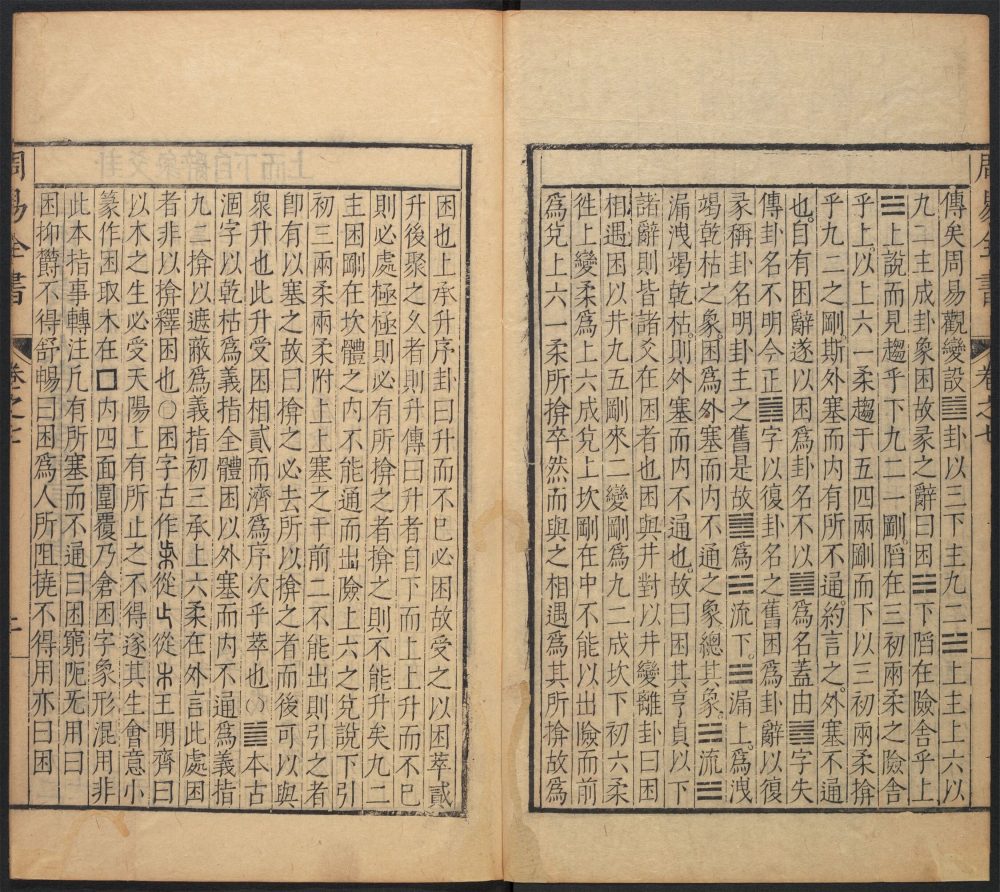 傳矣周易觀變設䷮卦以三下主九二☵上主上六以
九二主成卦象困故彖之辭曰困☵下陷在險舍乎上
☱上說而見趨乎下九二一剛陷在三初兩柔之險舍
乎上以上六一柔趨于五四兩剛而下以三初兩柔揜
乎九二之剛斯外塞而内有所不通約言之外塞不通
也自有困辭遂以困爲卦名不以䷮爲名蓋由䷮字失
傳卦名不明今正䷮字以復卦名之舊困爲卦辭以復
彖稱卦名明卦主之舊是故䷮爲☱流下☵漏上爲洩
竭乾枯之象困爲外塞而内不通之象總其象☱流☵
漏洩竭乾枯則外塞而内不通也故曰困其亨貞以下
諸辭則皆諸爻在困者也困與井對以井變離卦曰困
相遇困以井九五剛來二變剛爲九二成坎下初六柔
徃上變柔爲上六成兌上坎剛在中不能以出險而前
爲兌上六一柔所揜卒然而與之相遇爲其所揜故爲
困也上承升序卦曰升而不已必困故受之以困萃貳
升後聚之久者則升傳曰升者自下而上上升而不已
則必處極極則必有所揜之者揜之則不能升矣九二
主困剛在坎體之内不能通而出險上六之兌說下引
初三兩柔兩柔附上上塞之于前二不能出則引之者
卽有以塞之故曰揜之必去所以揜之者而後可以與
衆升也此升受困相貳而濟爲序次乎萃也○䷮本古
涸字以乾枯爲義指全體困以外塞而内不通爲義指
九二揜以遮蔽爲義指初三承上六柔在外言此處困
者非以揜釋困也○困字古作𣏔從止從木王明齊曰
以木之生必受天陽上有所止之不得遂其生會意小
篆作困取木在囗内四面圍覆乃倉囷字象形混用非
此本指事轉注凡有所塞而不通曰困窮阨无用曰
困抑欝不得舒暢曰困爲人所阻撓不得用亦曰困
周易全書
卷之七